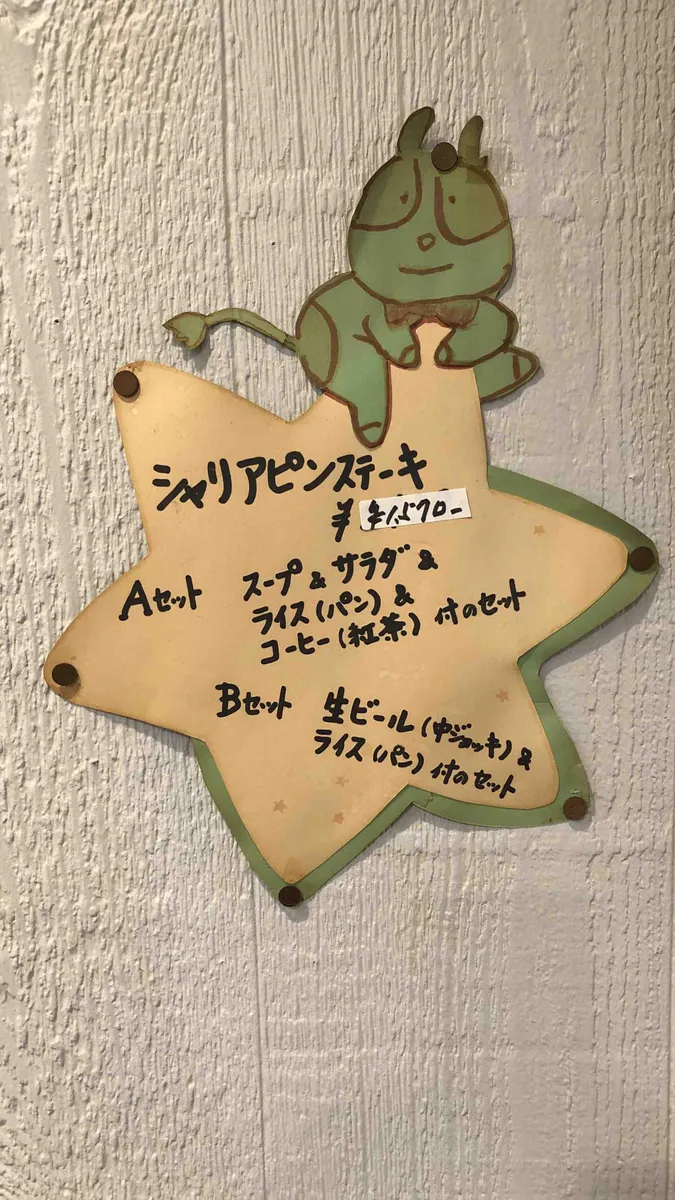 シャリアピンステーキ
¥ ¥1,570-
Aセット スープ&サラダ&
ライス(パン)&
コーヒー(紅茶) 付のセット
Bセット 生ビール(中ジョッキ)&
ライス(パン) 付のセット